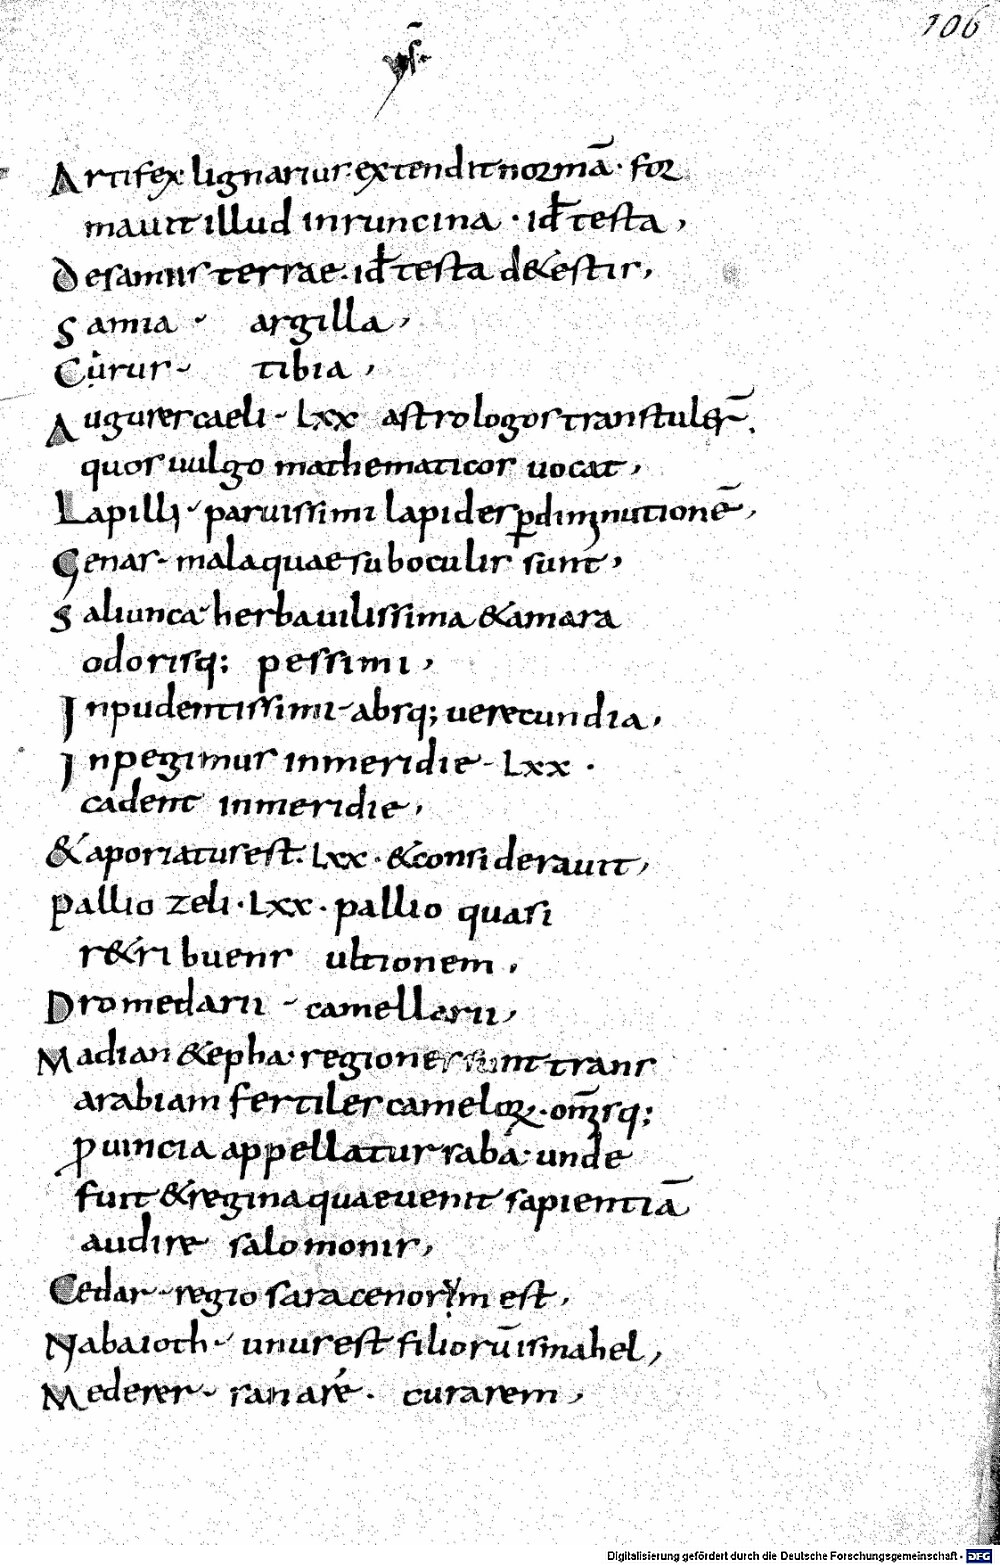 106
Artifex lignarius· extendit normā· for
mauit illud in runcina · id̄ testa,
De samiis terrae· id̄ testa de &estis,
Samia · argilla,
Crurus · tibia,
Augures caeli · Lxx astrologos transtuler̄,
quos uulgo mathematicos uocat,
Lapilli · paruissimi lapides ꝑ diminutionē,
Genas · mala quae sub oculis sunt,
Saliunca· herba uilissima & amara
odorisq; pessimi,
Inpudentissimi · absq; uerecundia,
Inpegimus in meridie · Lxx ·
cadent in meridie,
& aporiatus est· Lxx · & considerauit,
Pallio zeli · Lxx · pallio quasi
r&ribuens ultionem,
Dromedarii · camellarii,
Madian & epha· regiones sunt trans
arabiam fertiles camelorꝝ· om̄sq;
ꝓuincia appellatur saba· unde
fuit & regina quae uenit sapientiā
audire salomonis,
Cedar · regio saracenorum est,
Nabaioth · unus est filiorū ismahel,
Mederer · sanare · curarem,
Digitalisierung gefördert durch die Deutsche Forschungsgemeinschaft - DFG